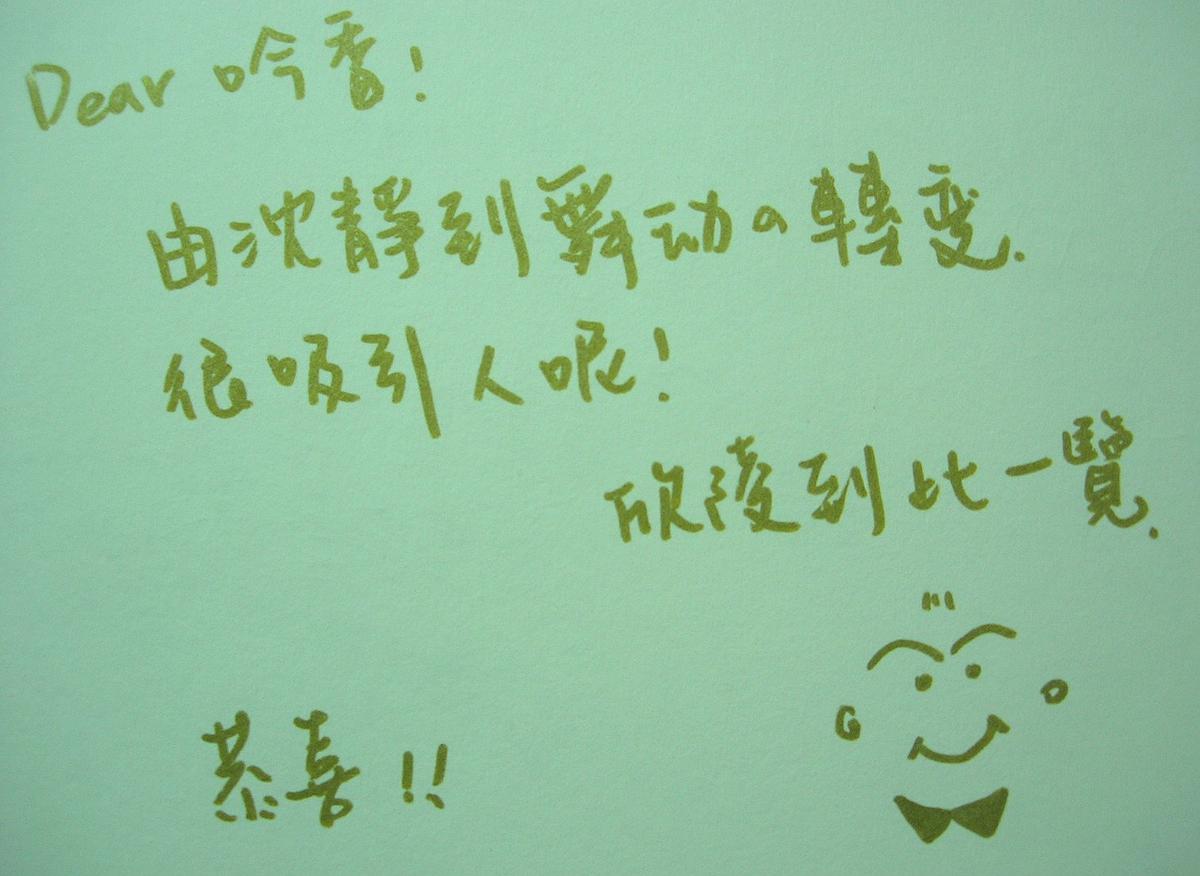 Dear 吟香!
由沈靜到舞动の轉变.
很吸引人呢!
欣陵到比一覽.
恭喜!!